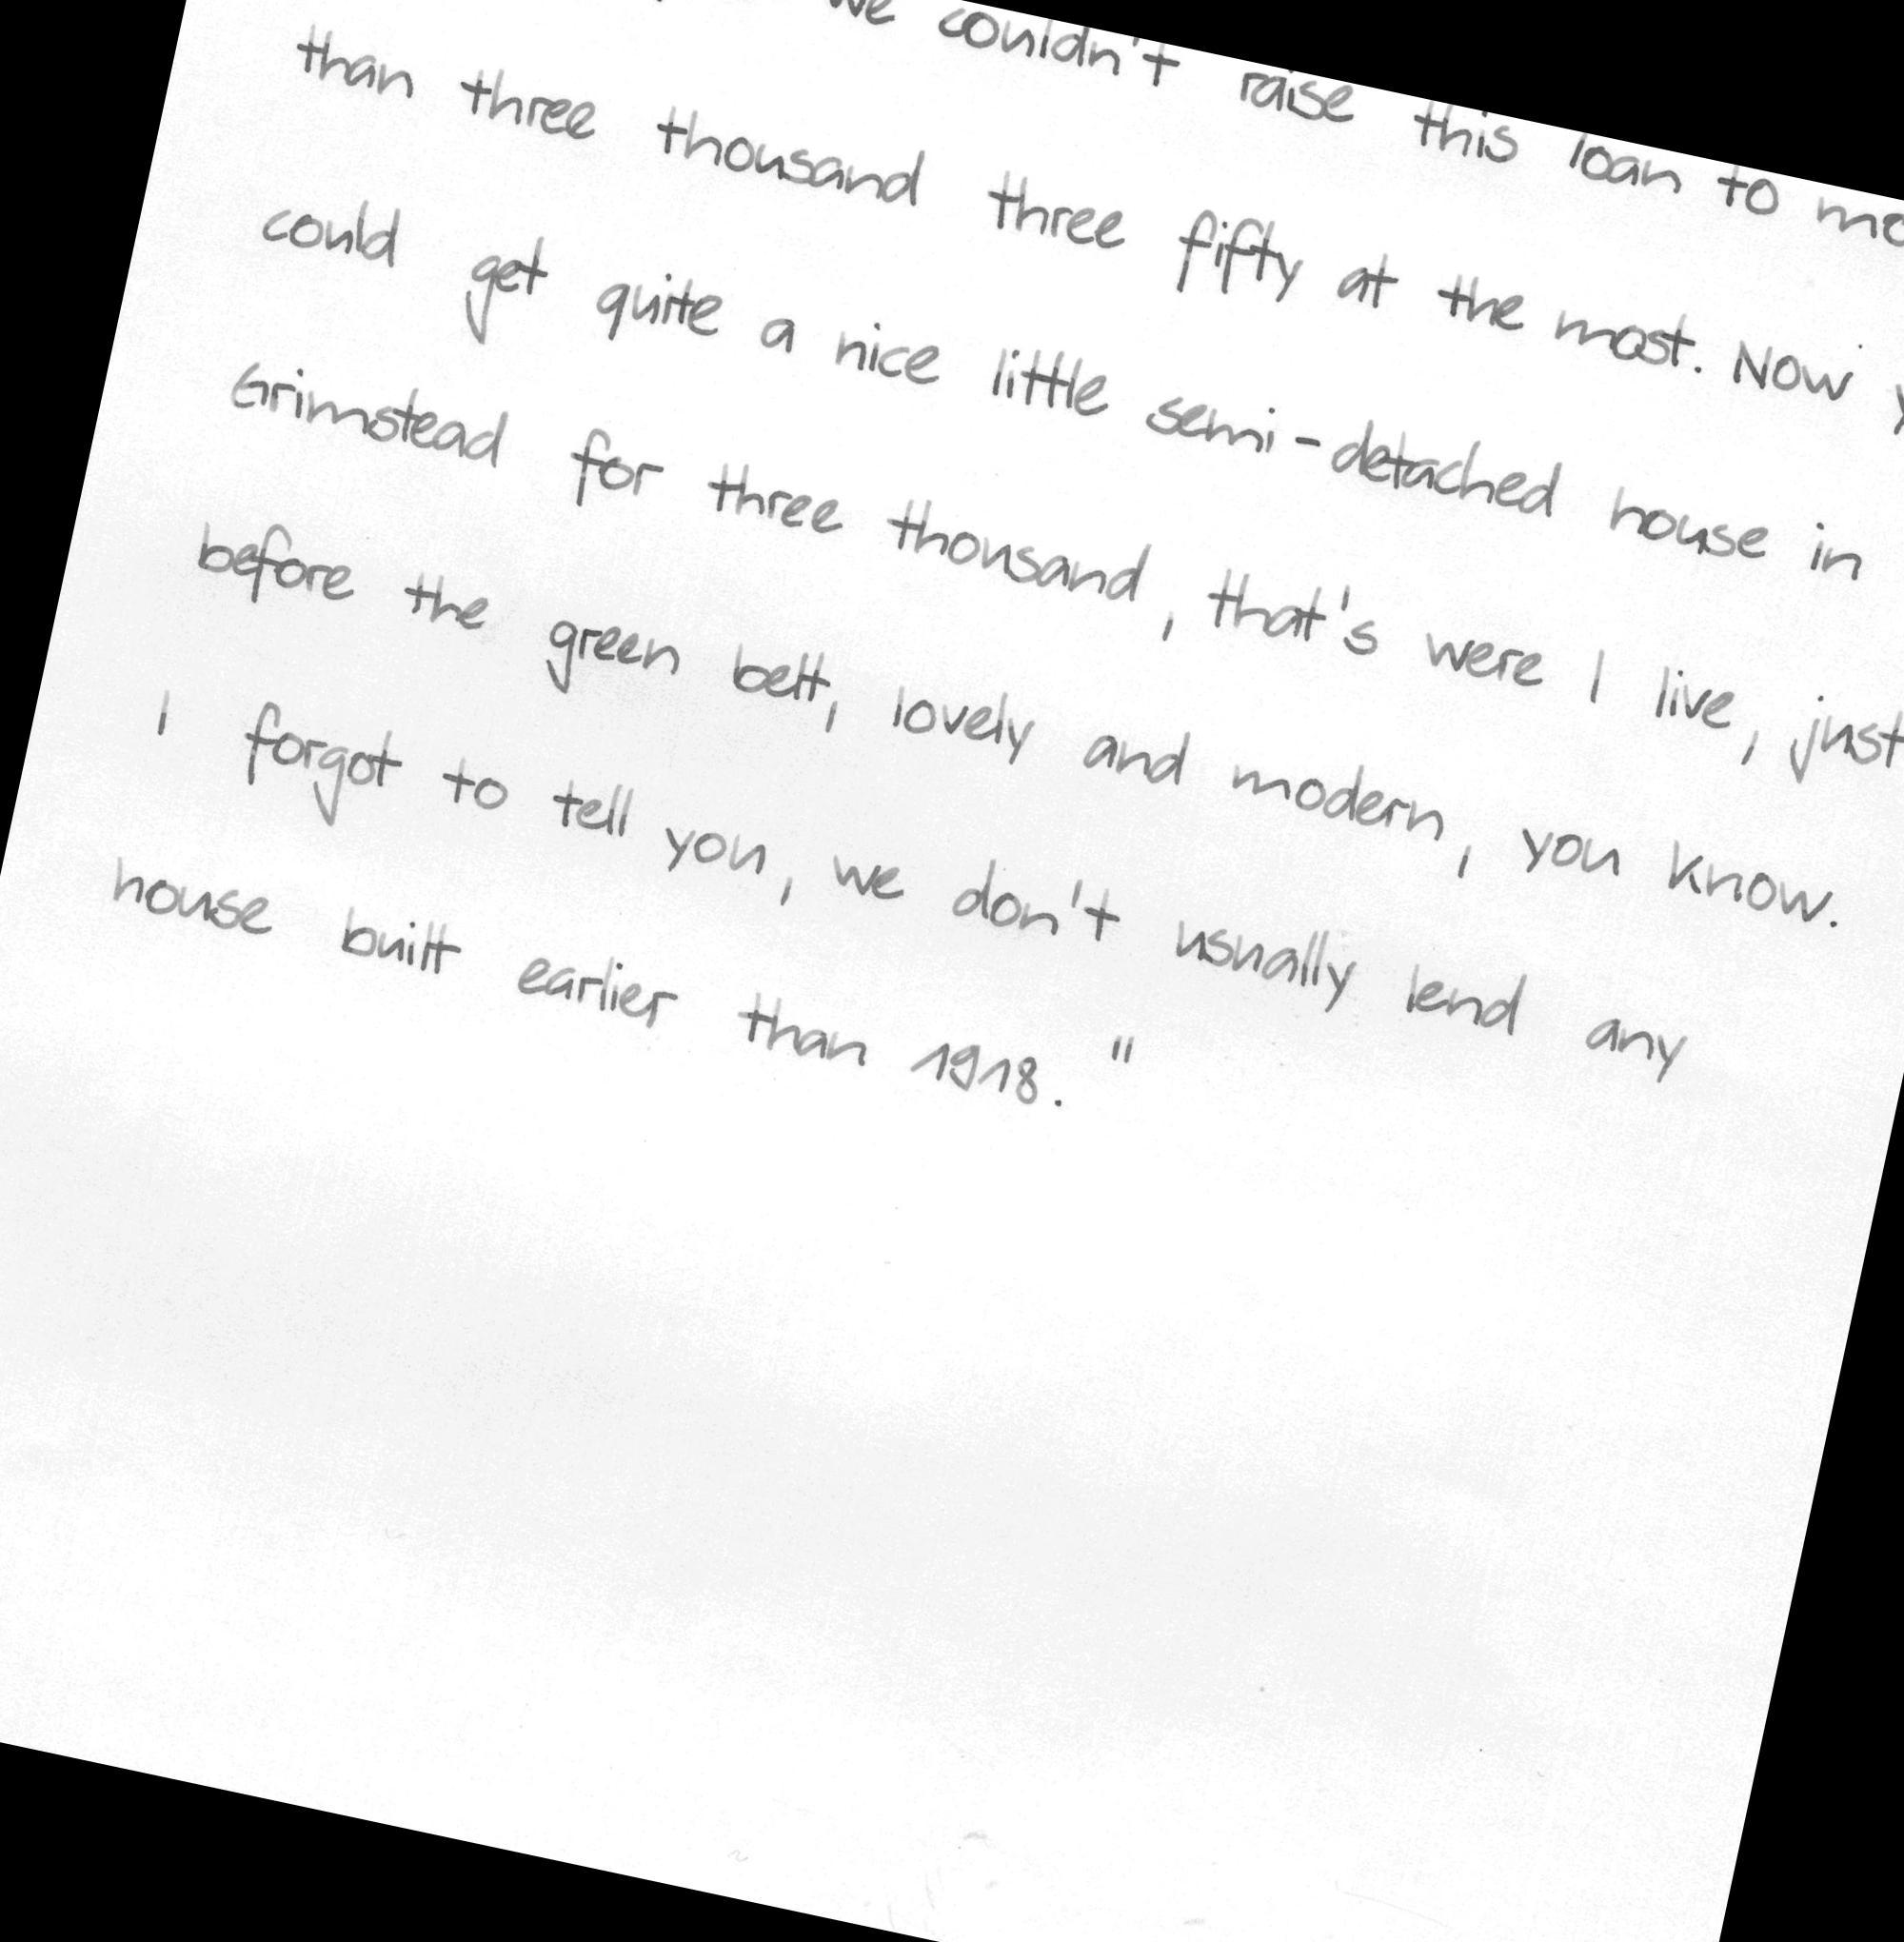 we couldn't raise this loan to
than three thousand three fifty at the most. Now
could get quite a nice little semi-detached house in
Grimstead for three thousand, that's were I live, just
before the green belt, lovely and modern, you know.
I forgot to tell you, we don't usually lend any
house built earlier than 1918."